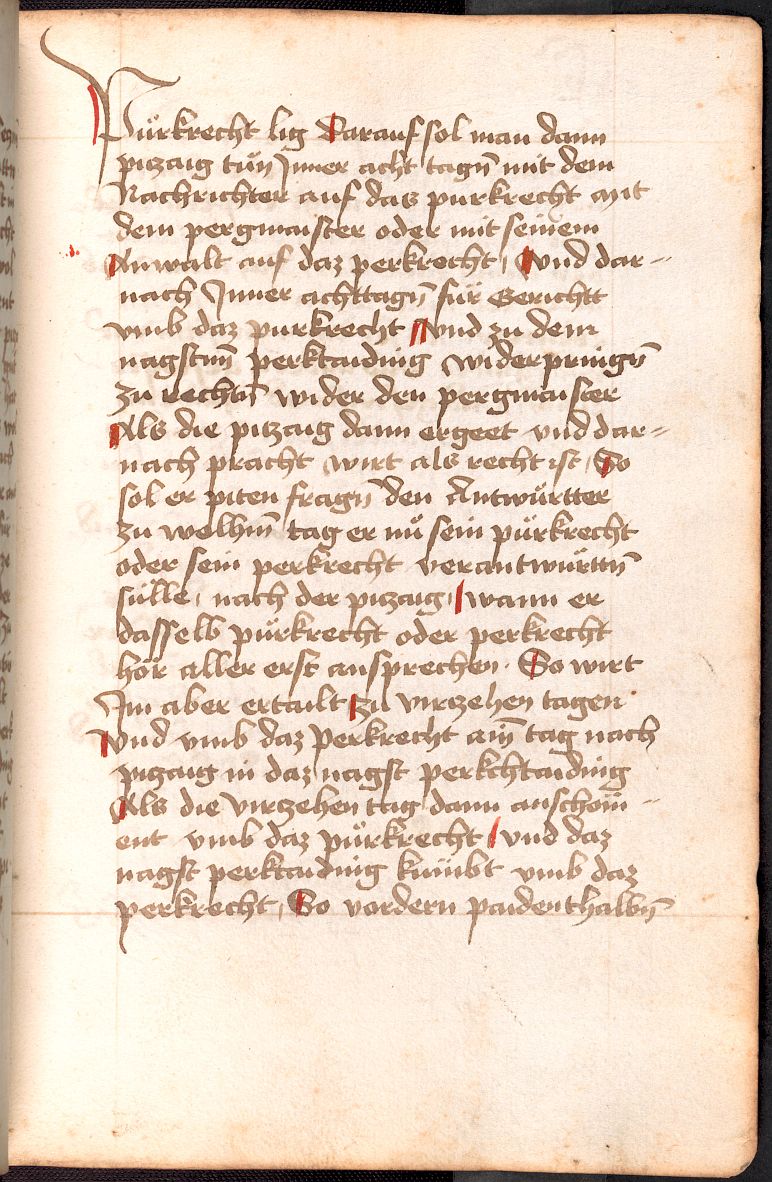 Pürkrecht lig Darauf sol man dann
pitzaig tün Inner acht tagn̄ mit dem
Nachrichter auf das purkrecht mit
dem pergmaister oder mit seinem
Anwalt auf daz perkrecht, Vnd dar-
nach Inner achttagn̄ für Gerichtt
vmb daz purkrecht Vnd zu dem
nagstnn̄ perktaiding widerpringn̄
zu rechtn̄ wider den pergmaister
Als die pitzaig dann ergeet vnd dar-
nach pracht wirt als recht ist, So
sol er piten fragn̄ den Antwürtter
zu welhm̄ tag er nü sein pürkrecht
oder sein perkrecht verantwürttn̄
sülle, nach der pitzaig, wann er
dasselb pürkrecht oder perkrecht
hör aller erst ansprechen. So wirt
Im aber ertailt zu virtzehen tagen
Vnd vmb daz perkrecht am̄ tag nach
pitzaig in daz nagst perkchtaiding
Als die virtzehen tag dann anschein-
ent vmb daz pürkrecht, vnd daz
nagst perktaiding kumbt vmb daz
perkrecht, So vordern paidenthalbn̄